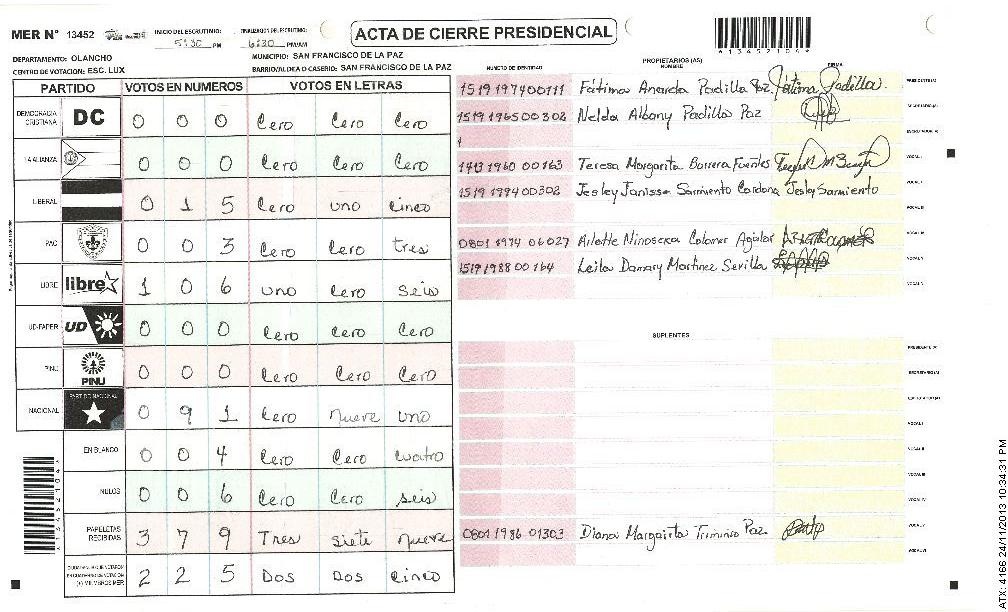 MER N° 13452
INICIO DEL ESCRUTINIO: 5:30 PM
FINALIZACION DEL ESCRUTINIO: 6:30 PM/AM
ACTA DE CIERRE PRESIDENCIAL
DEPARTAMENTO: OLANCHO
MUNICIPIO: SAN FRANCISCO DE LA PAZ
CENTRO DE VOTACION: ESC. LUX
BARRIO/ALDEA O CASERIO: SAN FRANCISCO DE LA PAZ
PARTIDO VOTOS EN NUMEROS VOTOS EN LETRAS
DEMOCRACIA CRISTIANA DC 0 0 0 Cero Cero Cero
LA ALIANZA 0 0 0 Cero Cero Cero
LIBERAL 0 1 5 Cero uno cinco
PAC 0 0 3 Cero Cero tres
LIBRE libre 1 0 6 uno Cero seis
UD-FAPER UD 0 0 0 Cero Cero Cero
PINU PINU 0 0 0 Cero Cero Cero
NACIONAL PARTIDO NACIONAL 0 9 1 Cero nueve uno
EN BLANCO 0 0 4 Cero Cero cuatro
NULOS 0 0 6 Cero Cero seis
PAPELETAS RECIBIDAS 3 7 9 Tres siete nueve
(+) MIEMBROS MER 2 2 5 Dos Dos cinco
1 3 4 5 2 1 0 4
PROPIETARIOS (AS)
NUMERO DE IDENTIDAD NOMBRE FIRMA
1519 1974 00111 Fátima Ananda Padilla Paz Fátima Padilla PRESIDENTE(A)
1519 1965 00302 Nelda Albany Padilla Paz SECRETARIO(A)
ESCRUTADOR(A)
1413 1960 00163 Teresa Margarita Barrera Fuentes VOCAL I
1519 1994 00302 Jesley Janissa Sarmiento Cardona Jesley Sarmiento
0801 1974 06027 Arlette Aguilar
1519 1988 00164 Leila Damary Martinez Sevilla
SUPLENTES
PRESIDENTE (A)
SECRETARIO(A)
ESCRUTADOR(A)
VOCAL I
VOCAL II
VOCAL III
VOCAL IV
0801 1986 01303 Diana Margarita Paz VOCAL V
VOCAL VI
ATX: 4166 24/11/2013 10:34:31 PM